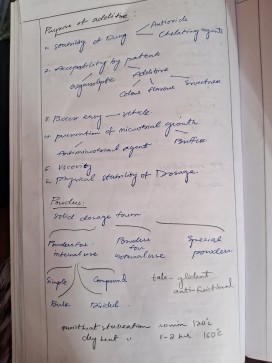 Purpose of additive:
Antioxide
1. stability of Drug
Chelating agents
2. Acceptability by patents
organoleptic Additive
Colour flavour Sweetness
3. easy vehicle
4. prevention of microbial growth
Antimicrobial agent Buffer
5. Viscosity
6. physical stability of Dosage
Powders:
solid dosage form
Powders for internal use
Powders for external use
Special powders
Simple Compound
talc - glidant
anti-frictional
Bulk Divided
moist heat sterilization 120°C
dry heat " 1-2 hrs 160°C